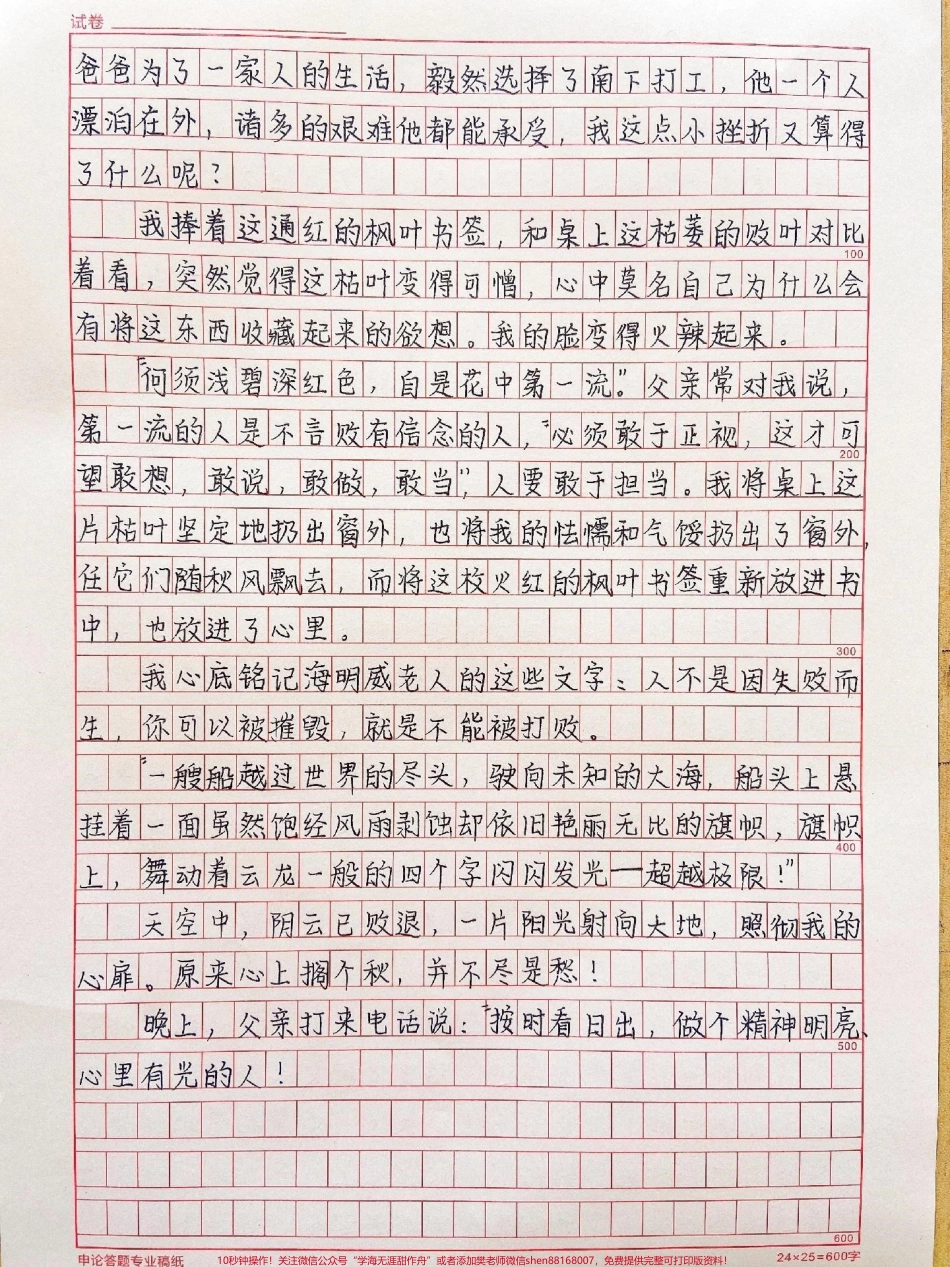 试卷
爸爸为了一家人的生活，毅然选择了南下打工，他一个人
漂泊在外，诸多的艰难他都能承受，我这点小挫折又算得
了什么呢？
我捧着这通红的枫叶书签，和桌上这枯萎的败叶对比
100
着看，突然觉得这枯叶变得可憎，心中莫名自己为什么会
有将这东西收藏起来的欲想。我的脸变得火辣起来。
“何须浅碧深红色，自是花中第一流。”父亲常对我说，
第一流的人是不言败有信念的人，“必须敢于正视，这才可
200
望敢想，敢说，敢做，敢当”，人要敢于担当。我将桌上这
片枯叶坚定地扔出窗外，也将我的怯懦和气馁扔出了窗外，
任它们随秋风飘去，而将这枚火红的枫叶书签重新放进书
中，也放进了心里。
300
我心底铭记海明威老人的这些文字：人不是因失败而
生，你可以被摧毁，就是不能被打败。
“一艘船越过世界的尽头，驶向未知的大海，船头上悬
挂着一面虽然饱经风雨剥蚀却依旧艳丽无比的旗帜，旗帜
400
上，舞动着云龙一般的四个字闪闪发光—超越极限！”
天空中，阴云已败退，一片阳光射向大地，照彻我的
心扉。原来心上搁个秋，并不尽是愁！
晚上，父亲打来电话说：“按时看日出，做个精神明亮、
500
心里有光的人！
600
申论答题专业稿纸
10秒钟操作！关注微信公众号“学海无涯甜作舟”或者添加樊老师微信shen88168007，免费提供完整可打印版资料！
24×25=600字